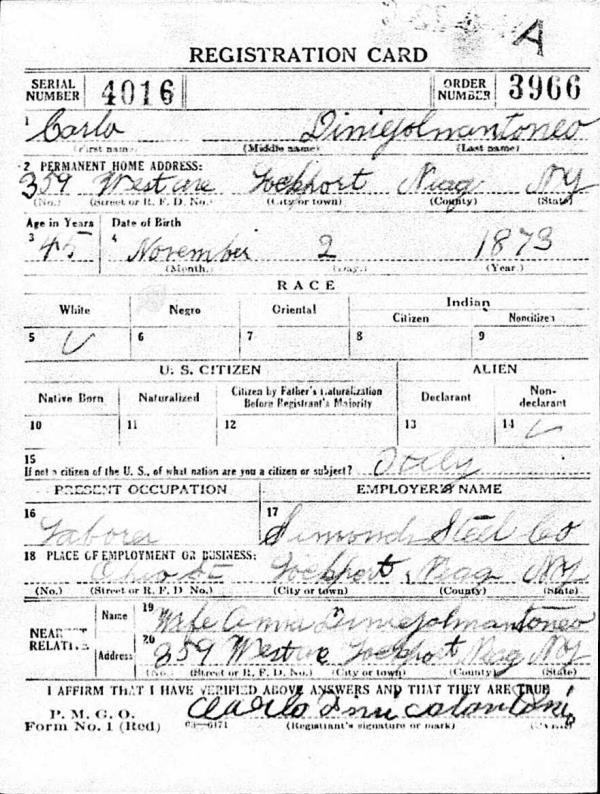 A
REGISTRATION CARD
SERIAL NUMBER 4016 ORDER NUMBER 3966
1 Carlo Diniejolmantoneo
(First name) (Middle name) (Last name)
2 PERMANENT HOME ADDRESS:
359 West ave Lockport Niag NY
(No.) (Street or R. F. D. No.) (City or town) (County) (State)
Age in Years Date of Birth
3 45 4 November 2 1873
(Month.) (Day.) (Year.)
RACE
White Negro Oriental Indian
Citizen Noncitizen
5 6 7 8 9
U. S. CITIZEN ALIEN
Native Born Naturalized Citizen by Father's Naturalization Before Registrant's Majority Declarant Non-declarant
10 11 12 13 14
15
If not a citizen of the U. S., of what nation are you a citizen or subject? Italy
PRESENT OCCUPATION EMPLOYER'S NAME
16 Laborer 17 Simonds Steel Co
18 PLACE OF EMPLOYMENT OR BUSINESS:
Ohio St Lockport Niag NY
(No.) (Street or R. F. D. No.) (City or town) (County) (State)
NEAREST RELATIVE Name 19 Wife Anna Diniejolmantoneo
Address 20 359 West ave Lockport Niag NY
(No.) (Street or R. F. D. No.) (City or town) (County) (State)
I AFFIRM THAT I HAVE VERIFIED ABOVE ANSWERS AND THAT THEY ARE TRUE
P. M. G. O.
Form No. 1 (Red) 03—6171 Carlo
(Registrant's signature or mark) (OVER)